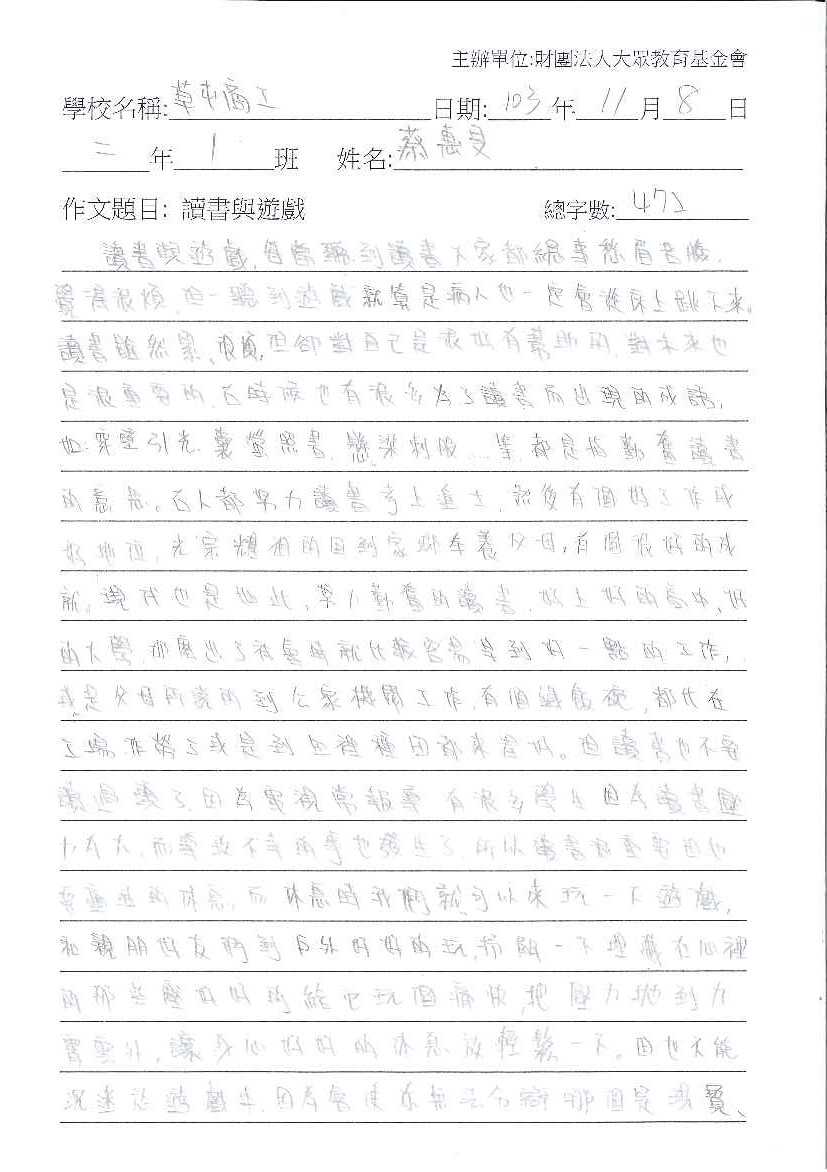 主辦單位:財團法人大眾教育基金會
學校名稱:草屯商工 日期:103年11月8日
二年1班 姓名:蔡惠
作文題目: 讀書與遊戲 總字數:471
讀書與遊戲,每當聽到讀書大家都總是愁眉苦臉,
覺得很煩,但一聽到遊戲就算是病人也一定會從床上跳下來。
讀書雖然累、很煩,但卻對自己是很好有幫助的,對未來也
是很重要的,古時候也有很多為了讀書而出現的成語,
如:鑿壁引光、囊螢照書、懸梁刺股……等,都是指勤奮讀書
的意思。古人都努力讀書考上進士,然後有個好工作或
好地位,光宗耀祖的回到家鄉奉養父母,有個很好的成
就。現代也是如此,努力勤奮的讀書,考上好的高中、好
的大學,那麼出了社會時就比較容易拿到好一點的工作,
或是父母所說的到公家機關工作,有個鐵飯碗,都比在
工廠作勞工或是到田裡種田都來的好。但讀書也不要
讀過頭了,因為電視常報導有很多學生因為讀書壓
力太大,而導致不幸的事也發生了,所以讀書很重要但也
要適當的休息,而休息時我們就可以來玩一下遊戲,
和親朋好友們到戶外好好的玩,抒解一下埋藏在心裡
的那些壓好好的給它玩個痛快,把壓力拋到九
霄雲外,讓身心好好的休息放輕鬆一下。但也不能
沉迷於遊戲中,因為會使你無法分辨哪個是現實、